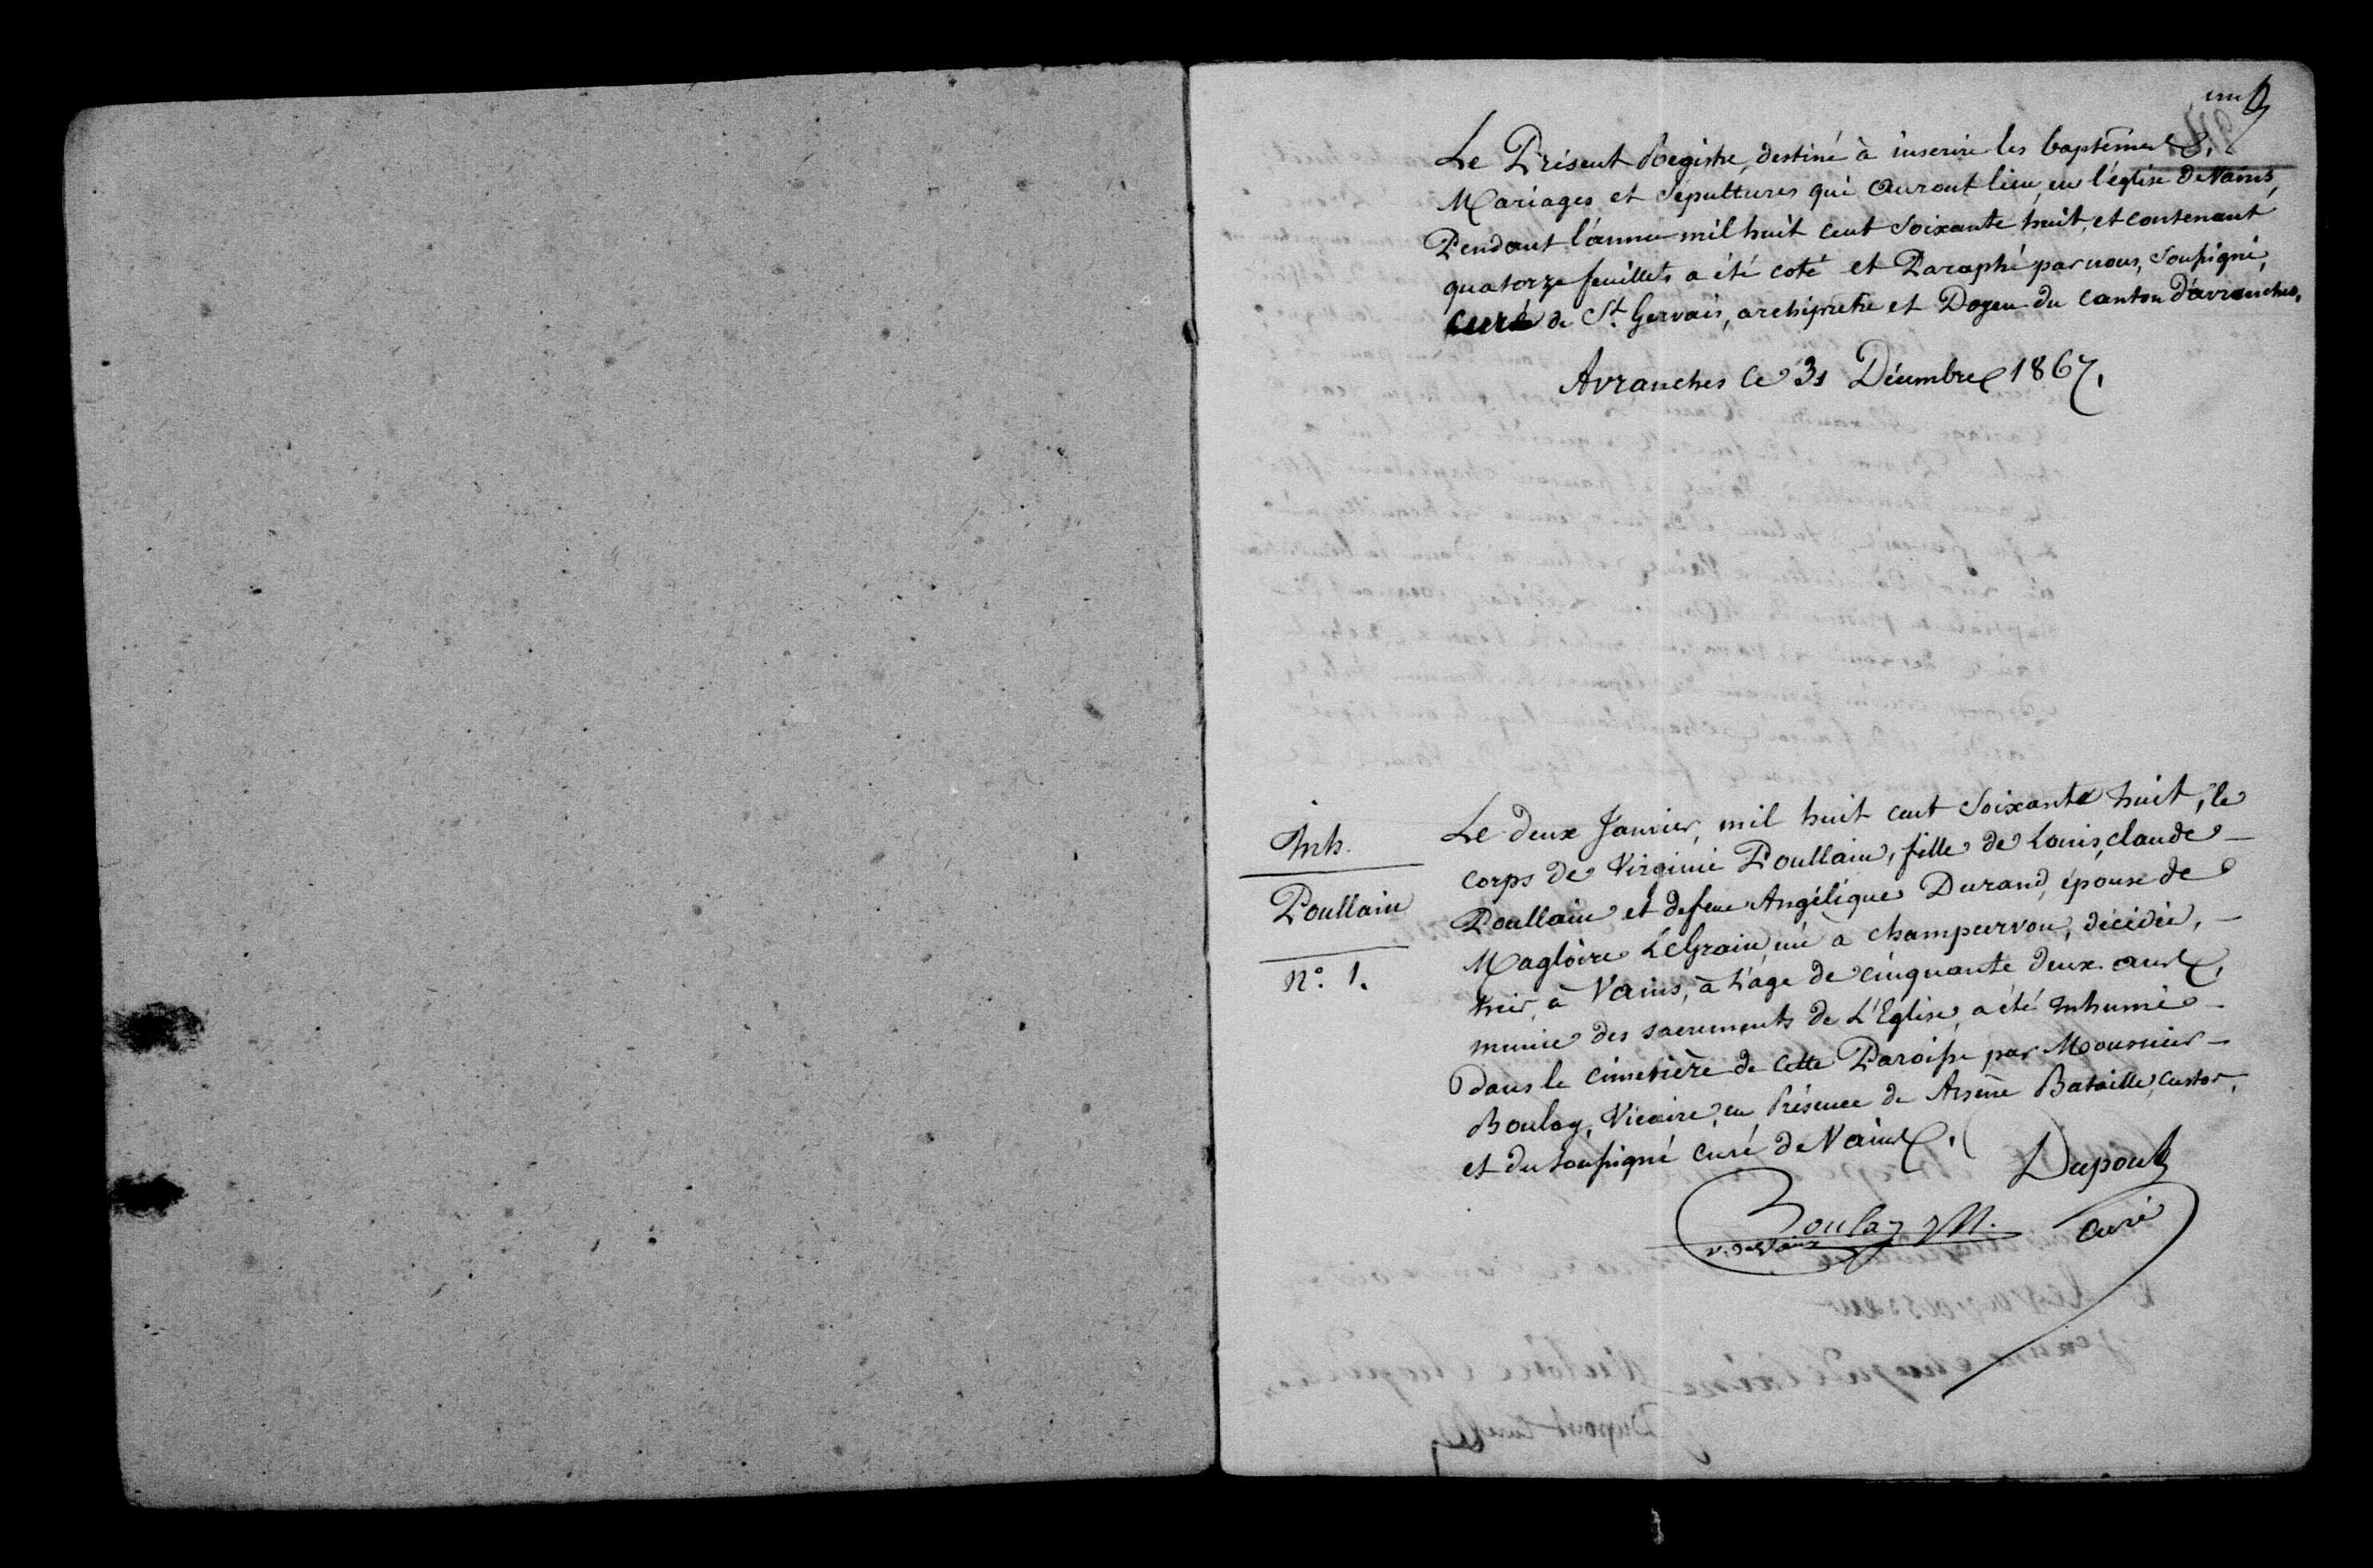 un
Le Présent Registre, destiné à inscrire les baptêmes,
Mariages et Sépultures qui auront lieu, en l'église de Vains,
Pendant l'année mil huit cent soixante huit, et contenant
quatorze feuillets a été coté et Paraphé par nous, soussigné,
curé de St. Gervais, archiprêtre et Doyen du canton d'avranches.
Avranches le 31 Décembre 1867.
Inh.
Poullain
N°. 1.
Le deux Janvier, mil huit cent soixante huit, le
corps de Virginie Poullain, fille de Louis, claude
Poullain et de feue Angélique Durand, épouse de
Magloire LeGrain, né a champcervon, décédée,
hier, à Vains, à l'âge de cinquante deux ans,
munie des sacrements de L'Eglise, a été Inhumé
dans le cimetière de cette Paroisse par Monsieur
Boulay, Vicaire, en Présence de Arsène Bataille, custos,
et du soussigné curé de Vains.
Dupont
Boulay M.
curé
v. de Vains